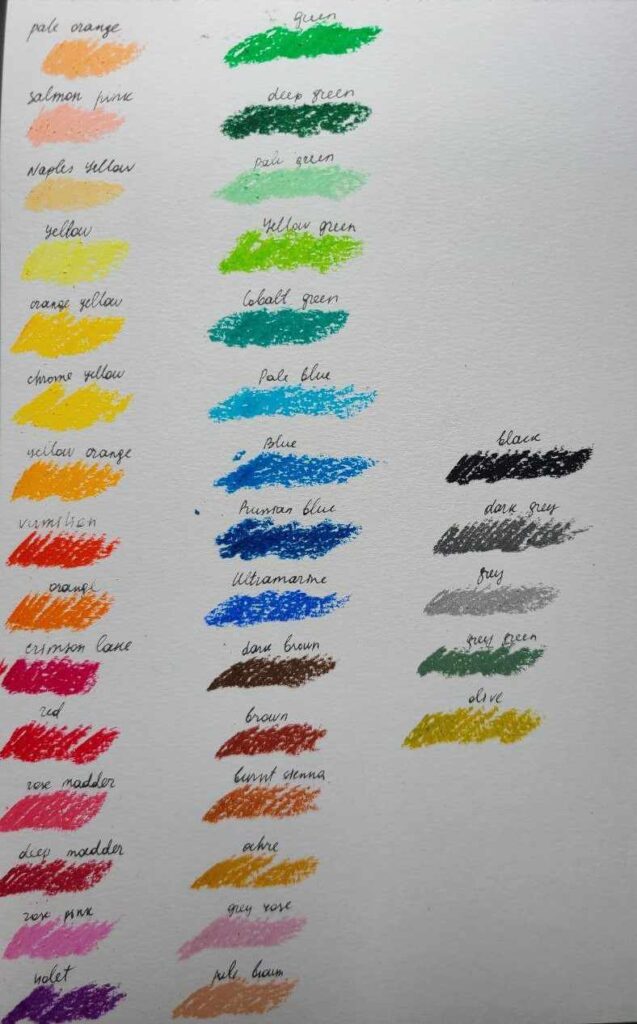 pale orange
salmon pink
Naples yellow
yellow
orange yellow
chrome yellow
yellow orange
vermilion
orange
crimson lake
red
rose madder
deep madder
rose pink
violet
green
deep green
pale green
Yellow green
Cobalt green
Pale blue
Blue
Prussian blue
Ultramarine
dark brown
brown
burnt sienna
ochre
grey rose
pale brown
black
dark grey
grey
grey green
olive